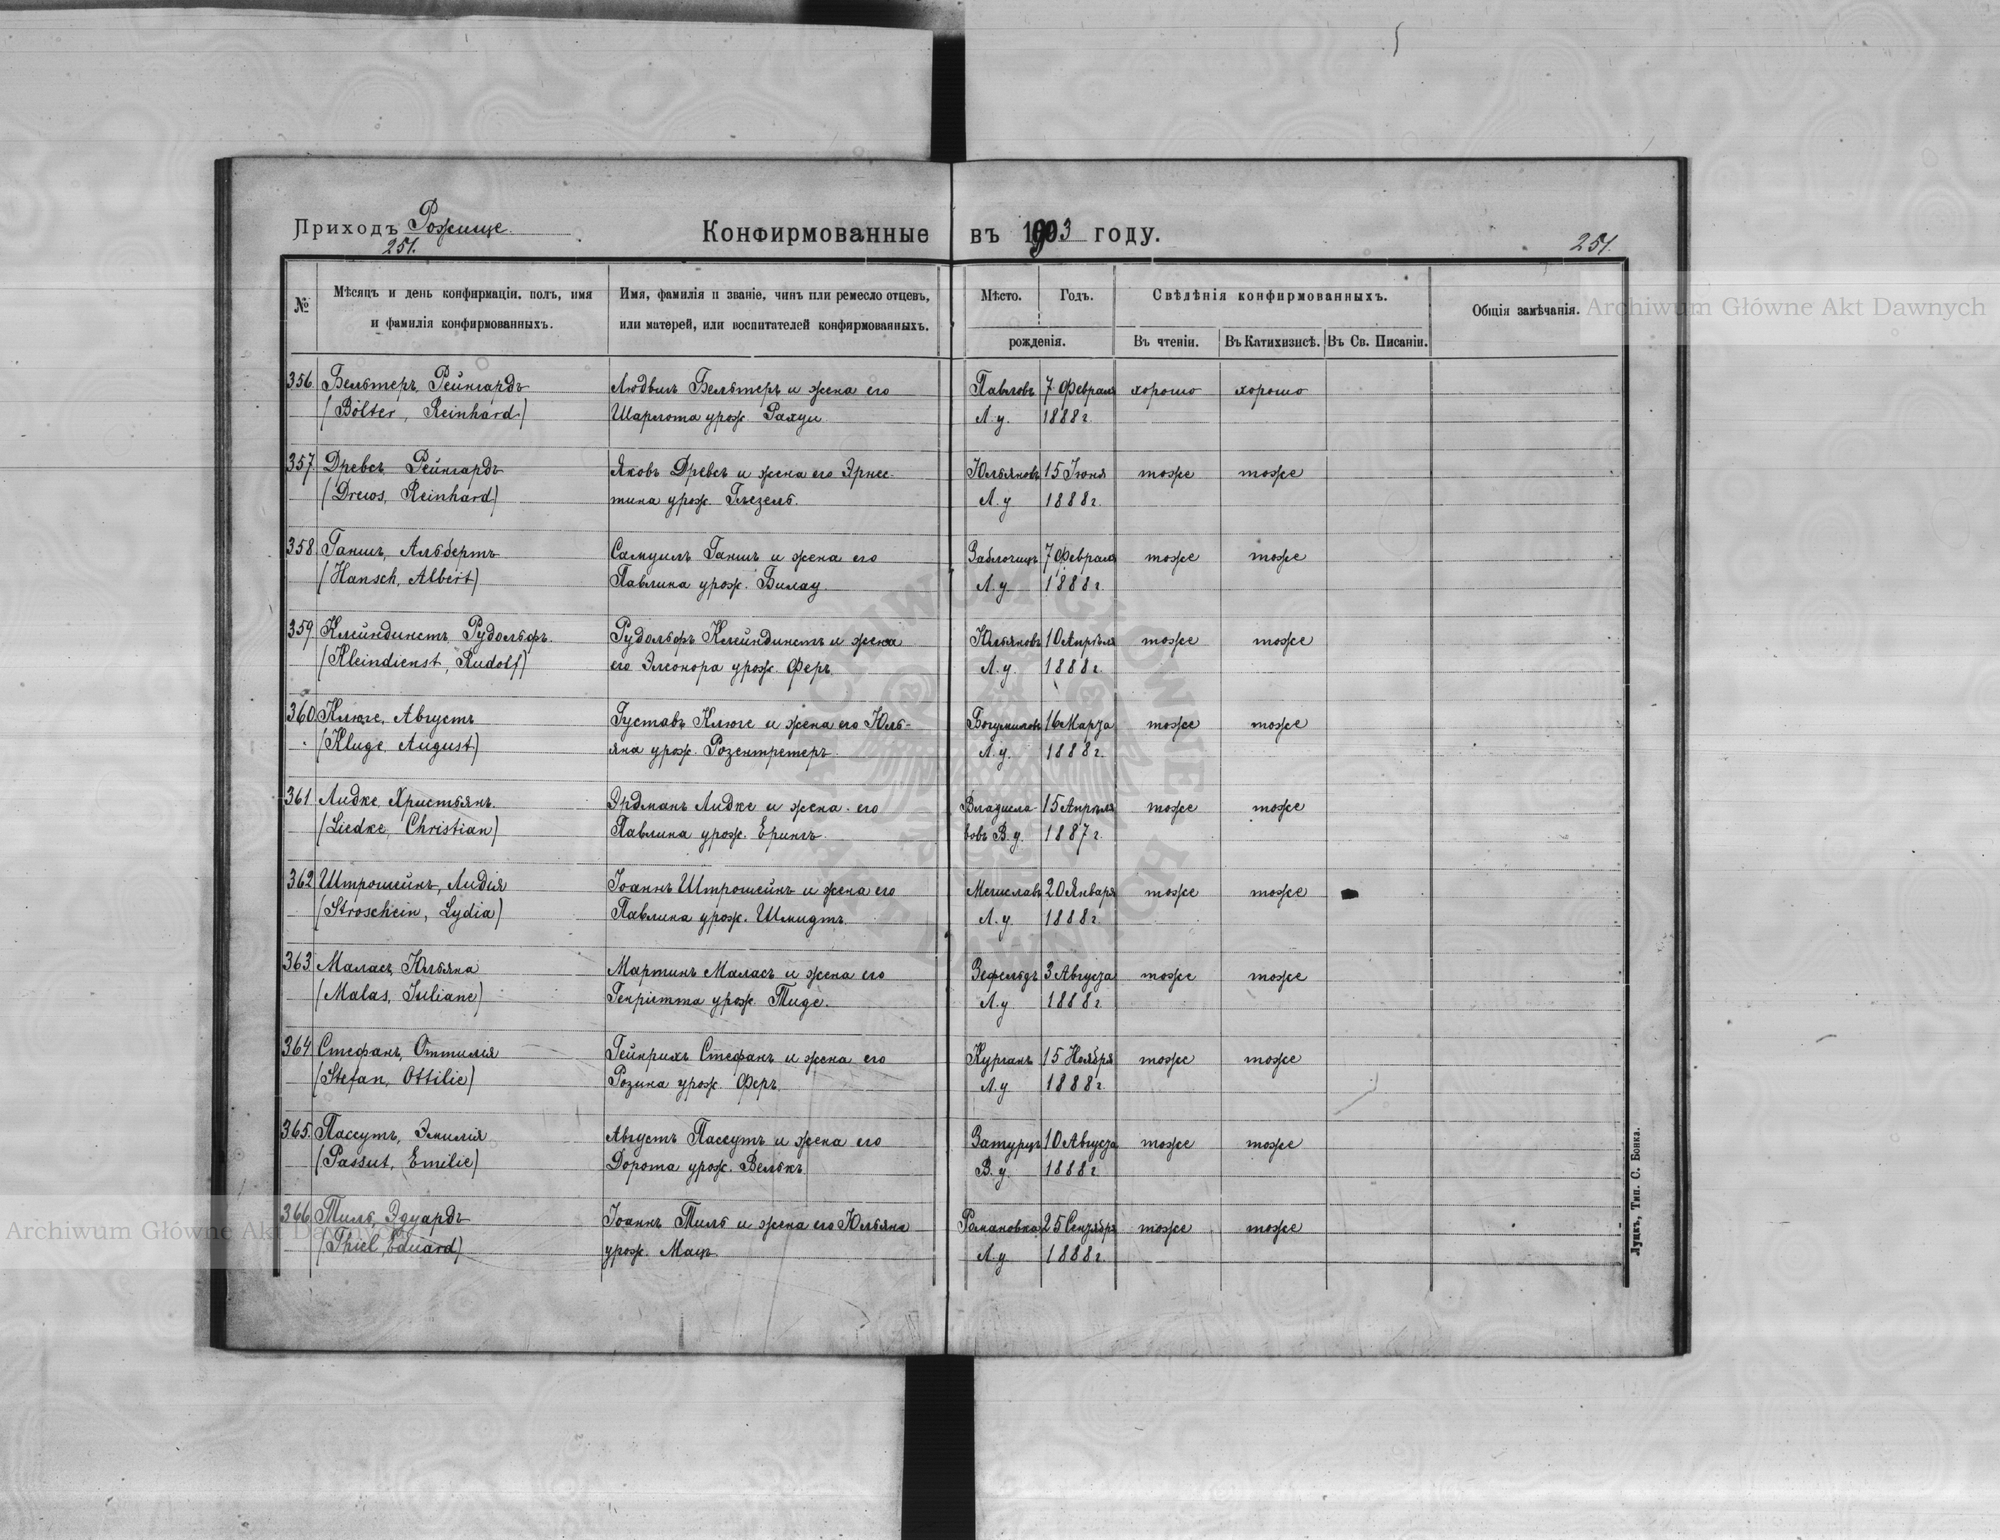 Приходъ Рожище.
251.
Конфирмованные въ 1903 году.
251.
№
Мѣсяцъ и день конфирмаціи, полъ, имя
и фамилія конфирмованныхъ.
Имя, фамилія и званіе, чинъ или ремесло отцевъ,
или матерей, или воспитателей конфирмованныхъ.
Мѣсто. Годъ.
рожденія.
Свѣдѣнія конфирмованныхъ.
Въ чтеніи. Въ Катихизисѣ. Въ Св. Писаніи.
Общія замѣчанія.
356 Бельтеръ, Рейнгардъ Людвигъ Бельтеръ и жена его Павловъ 7 Февраля хорошо хорошо
(Bölter, Reinhard) Шарлота урож. Рахуи Л. у. 1888 г.
357 Древсъ Рейнгардъ Яковъ Древсъ и жена его Эрнес- Юльяновъ 15 Іюня тоже тоже
(Drews, Reinhard) тина урож. Гьезель. Л. у 1888 г.
358 Ганшъ, Альбертъ Самуилъ Ганшъ и жена его Заблочцъ 7 Февраля тоже тоже
(Hansch, Albert) Павлина урож. Билау. Л. у 1888 г.
359 Клейндинстъ, Рудольфъ. Рудольфъ Клейндинстъ и жена Юльяновъ 10 Апрѣля тоже тоже
(Kleindienst, Rudolf) его Элеонора урож. Феръ. Л. у. 1888 г.
360 Клюге, Августъ Густавъ Клюге и жена его Юль- Богумиловъ 16 Марта тоже тоже
(Kluge, August) яна урож. Розентретеръ. Л. у. 1888 г.
361 Лидке, Христьянъ. Эрдманъ Лидке и жена его Владисла- 15 Апрѣля тоже тоже
(Liedke, Christian) Павлина урож. Ерингъ. вовъ В. у. 1887 г.
362 Штрошейнъ, Лидія Іоаннъ Штрошейнъ и жена его Мечиславъ 20 Января тоже тоже
(Stroschein, Lydia) Павлина урож. Шмидтъ. Л. у. 1888 г.
363 Маласъ, Юльяна Мартинъ Маласъ и жена его Зефельдъ 3 Августа тоже тоже
(Malas, Juliane) Генріетта урож. Тиде. Л. у 1888 г.
364 Стефанъ, Оттилія Гейнрихъ Стефанъ и жена его Курганъ 15 Ноября тоже тоже
(Stefan, Ottilie) Розина урож. Феръ. Л. у 1888 г.
365. Пассутъ, Эмилія Августъ Пассутъ и жена его Затурцъ 10 Августа тоже тоже
(Passut, Emilie) Дорота урож. Велькъ. В. у. 1888 г.
366 Тиль, Эдуардъ Іоаннъ Тиль и жена его Юльяна Романовка 25 Сентября тоже тоже
(Thiel, Eduard) урож. Мацъ. Л. у 1888 г.
Луцкъ, Тип. С. Бонка.
Archiwum Główne Akt Dawnych
Archiwum Główne Akt Dawnych